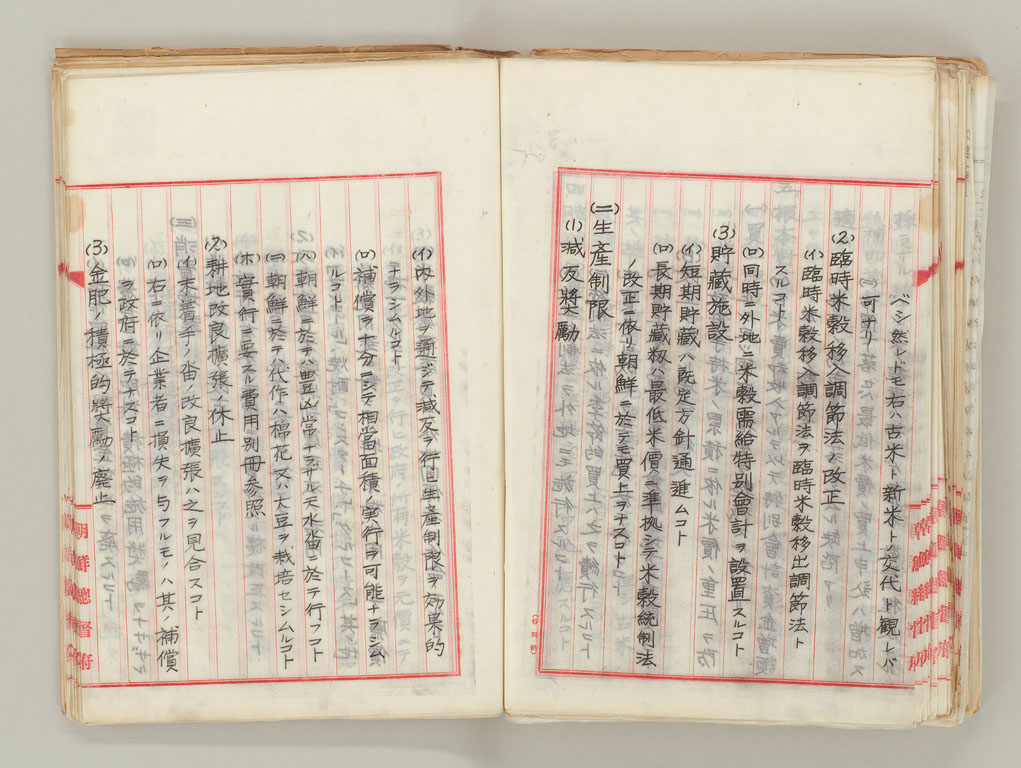 ベシ然レドモ右ハ古米ト新米トノ交代ト観レバ
可ナリ
(2)臨時米穀移入調節法ノ改正
(イ)臨時米穀移入調節法ヲ臨時米穀移出調節法ト
スルコト
(ロ)同時ニ外地ニ米穀需給特別會計ヲ設置スルコト
(3)貯藏施設
(イ)短期貯藏ハ既定方針通進ムコト
(ロ)長期貯藏籾ハ最低米價ニ準拠シテ米穀統制法
ノ改正ニ依リ朝鮮ニ於テモ買上ヲナスコト
(二)生産制限
(1)減反奬勵
(イ)内外地ヲ通ジテ減反ヲ行ヒ生産制限ヲ効果的
ナラシムルコト
(ロ)補償ヲ十分ニシテ相當面積ノ実行ヲ可能ナラシム
ルコト
(ハ)朝鮮ニ於テハ豊凶常ナラザル天水畓ニ於テ行フコト
(ニ)朝鮮ニ於テハ代作ハ棉花又ハ大豆ヲ栽培セシムルコト
(ホ)實行ニ要スル費用別冊参照
(2)耕地改良擴張ノ休止
(イ)未着手ノ畓ノ改良擴張ハ之ヲ見合スコト
(ロ)右ニ依リ企業者ニ損失ヲ与フルモノハ其ノ補償
ヲ政府ニ於テナスコト
(3)金肥ノ積極的奬勵ノ廃止
朝鮮總督府